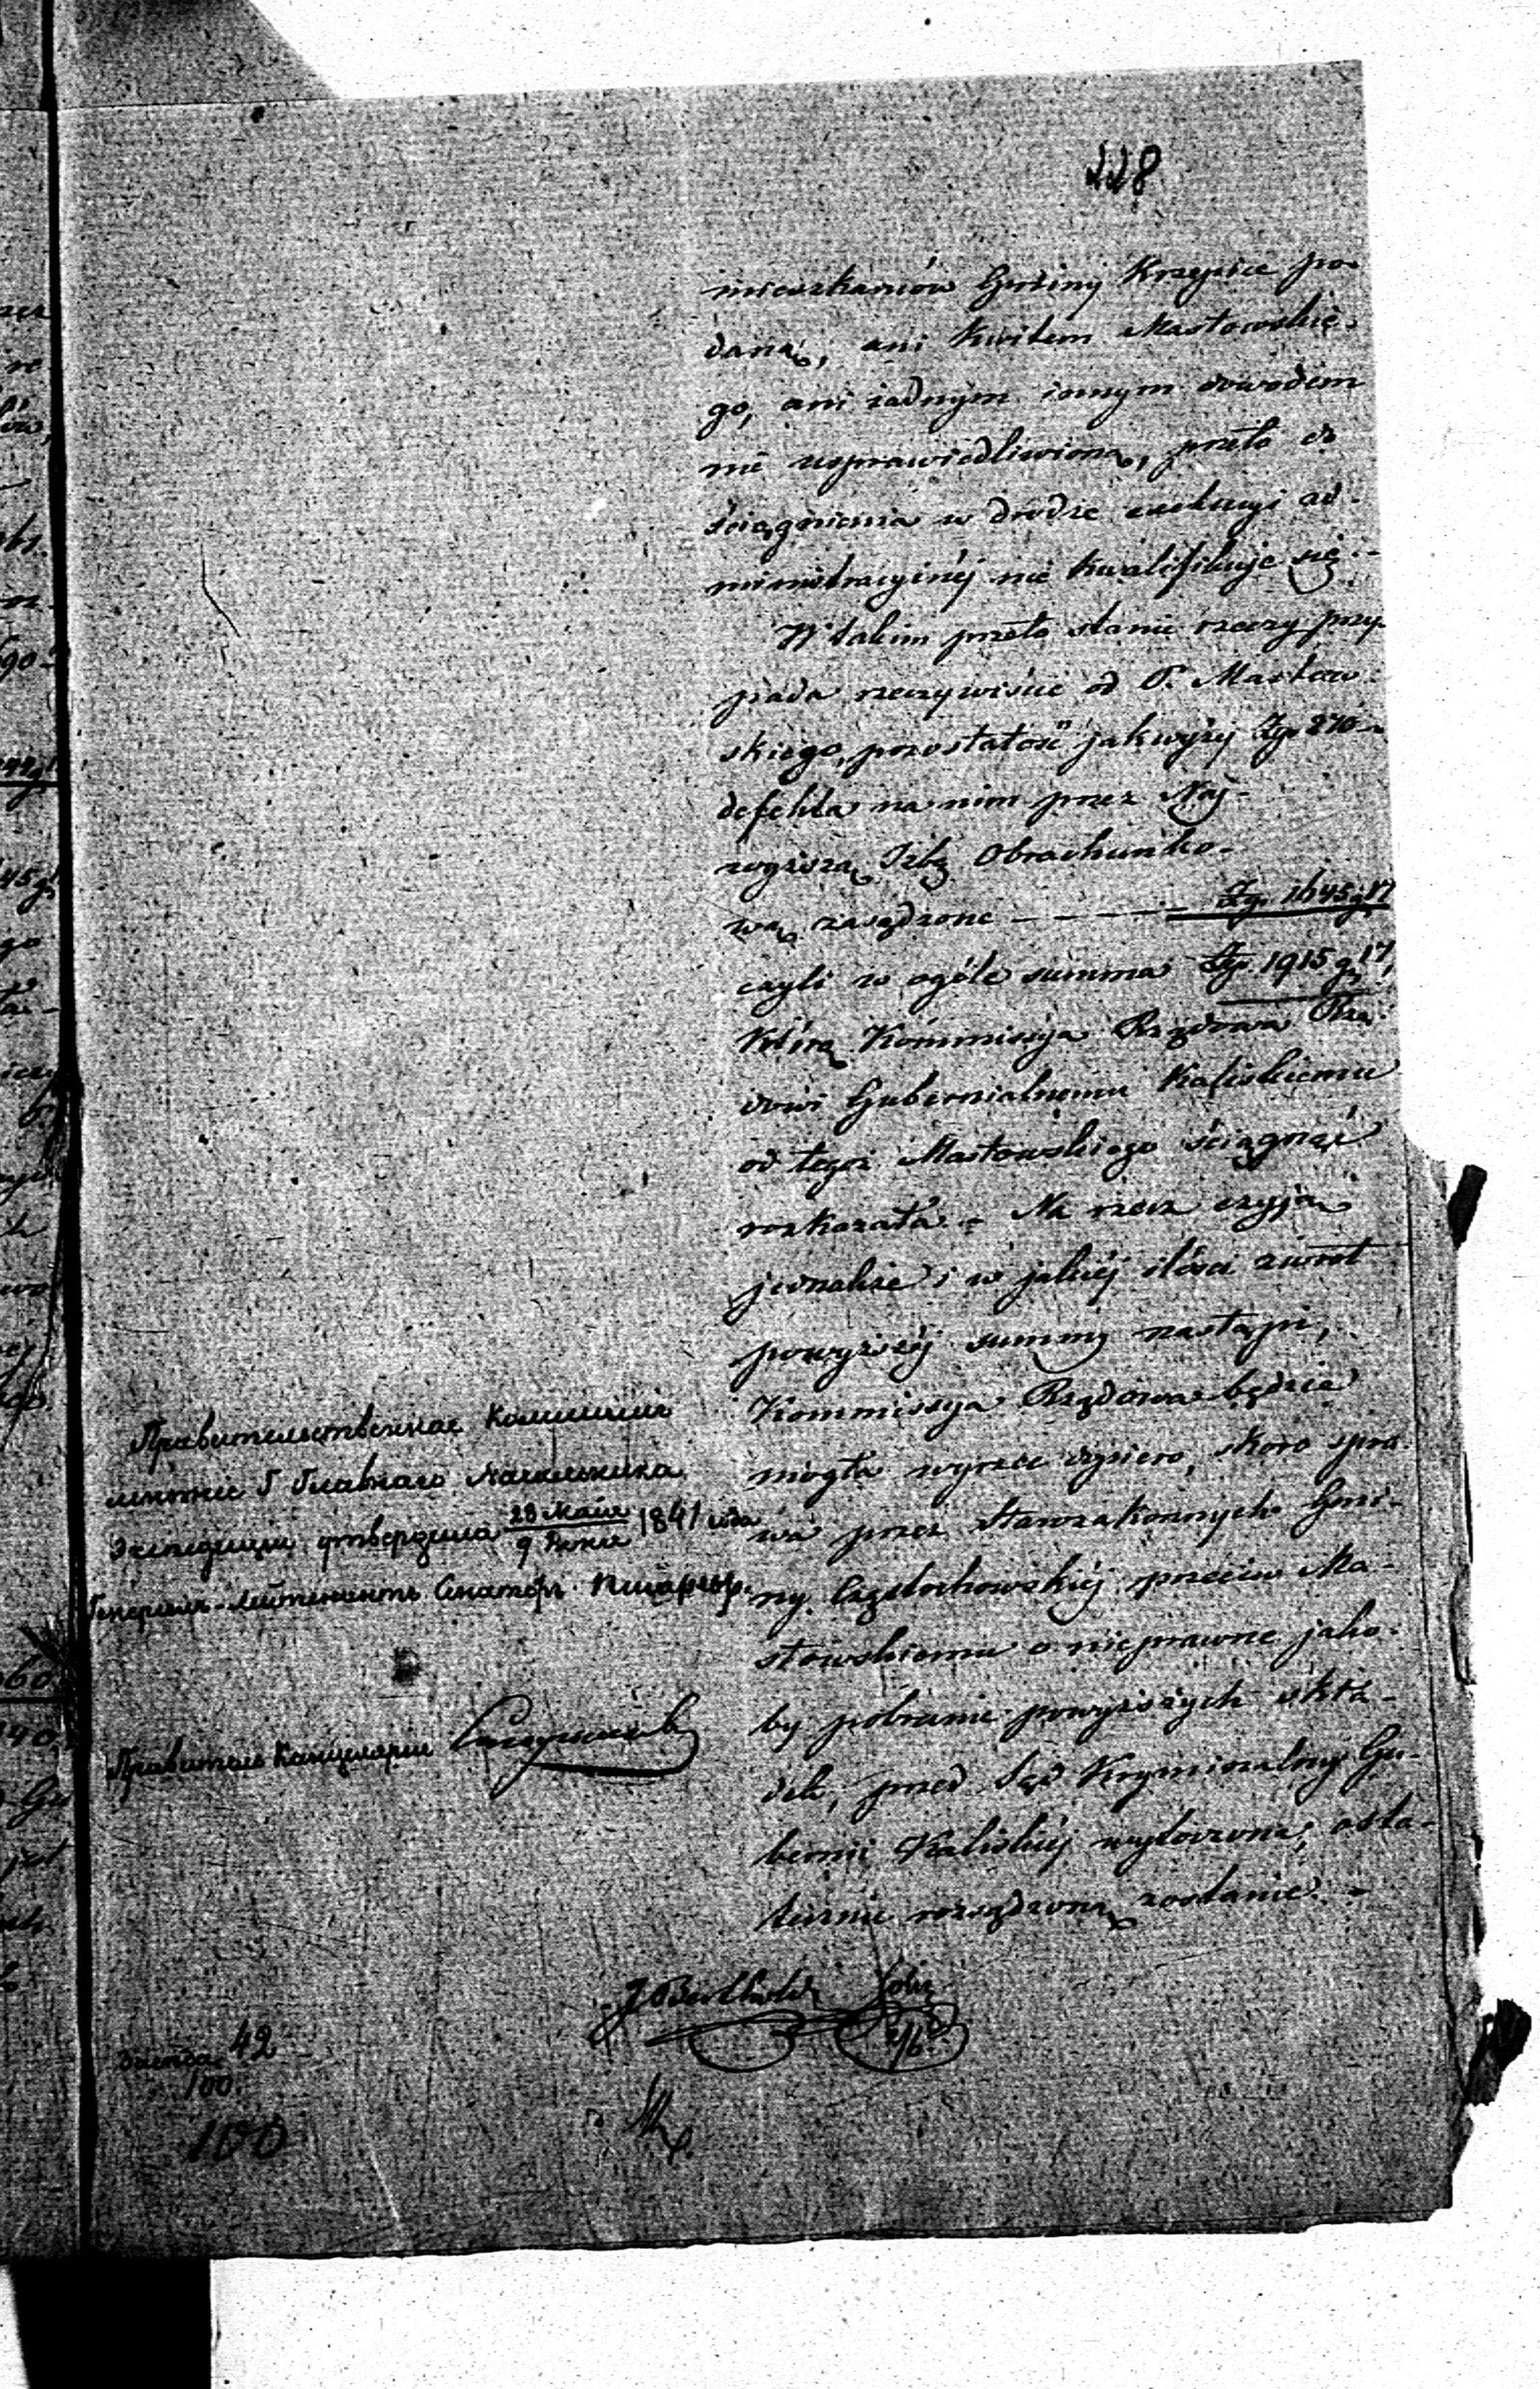 228
mieszkańców Gminy Krzepice po-
daną, ani kwitem Masłowskie-
go, ani żadnym innym dowodem
nie usprawiedliwioną, przeto do
ściągnienia w drodze exekucyi ad-
ministracyjnéj nie kwalifikuje się. -
W takim przeto stanie rzeczy przy-
pada rzeczywiście od P. Masłow-
skiego, pozostałość jak wyżéj Złp. 270 -
defekta na nim przez Naj-
wyższą Izbę Obrachunko-
wą zasądzone - - - - - Złp. 1645 gr 17
czyli w ogóle summa Złp. 1915 gr 17,
którą Kommissya Rządowa Rzą-
dowi Gubernialnemu Kaliskiemu
od tegoż Masłowskiego ściągnąć
rozkazała. - Na rzecz czyją
jednakże i w jakiéj ilości zwrot
powyższéj summy nastąpi,
Kommissya Rządowa będzie
mogła wyrzec dopiero, skoro spra-
wa przez Starozakonnych Gmi-
ny Częstochowskiéj przeciw Ma-
słowskiemu o nieprawne jako-
by pobranie powyższych skła-
dek, przed Sąd Kryminalny Gu-
bernii Kaliskiéj wytoczona, osta-
tecznie rozsądzoną zostanie. -
Правительственная Коммисія
мнѣніе Г Главнаго Начальника
Экспедиціи утвердила 28 Мая / 9 Іюня 1841 года
Генералъ-Лейтенантъ Сенаторъ Писаревъ.
Правитель Канцеляріи
42
100
100